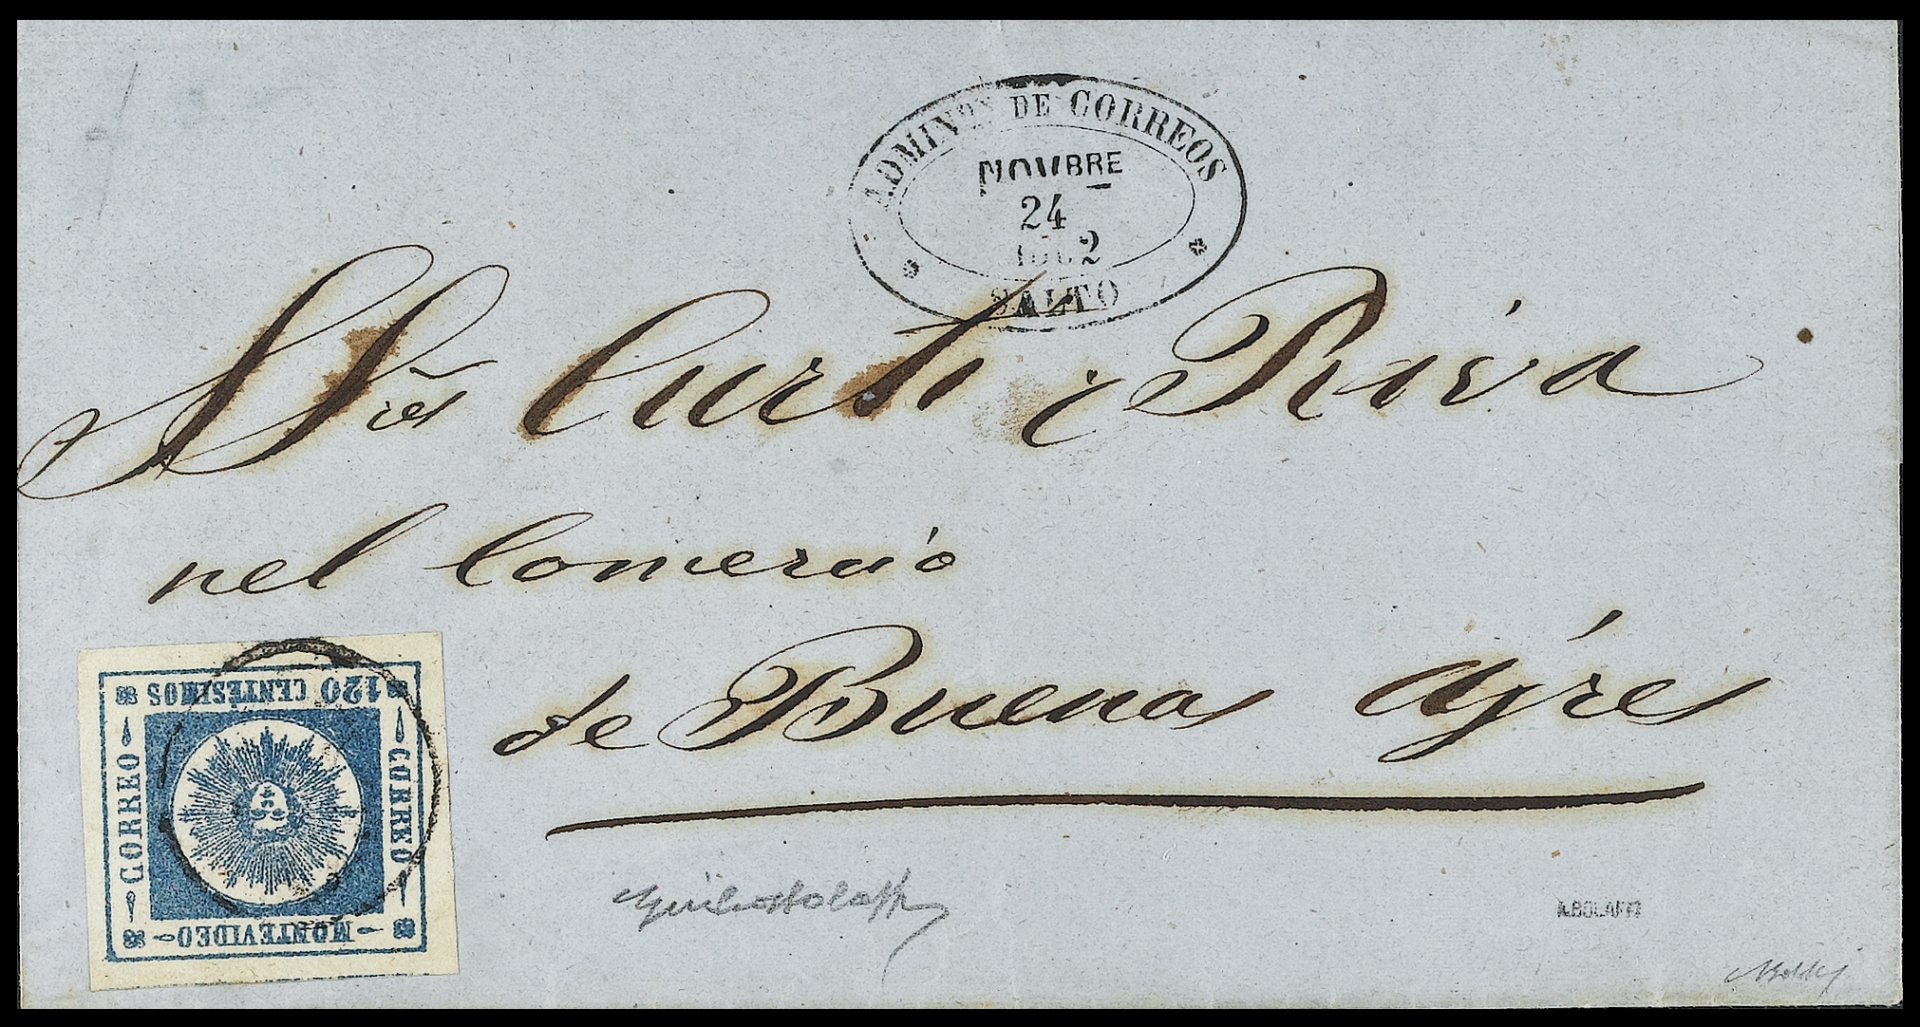 ADMINON DE CORREOS
NOVBRE
24
1862
SALTO
SSres Curti y Riva
nel Comercio
de Buenos Ayres
120 CENTESIMOS
CORREO
CORREO
MONTEVIDEO
A.BOLAFFI